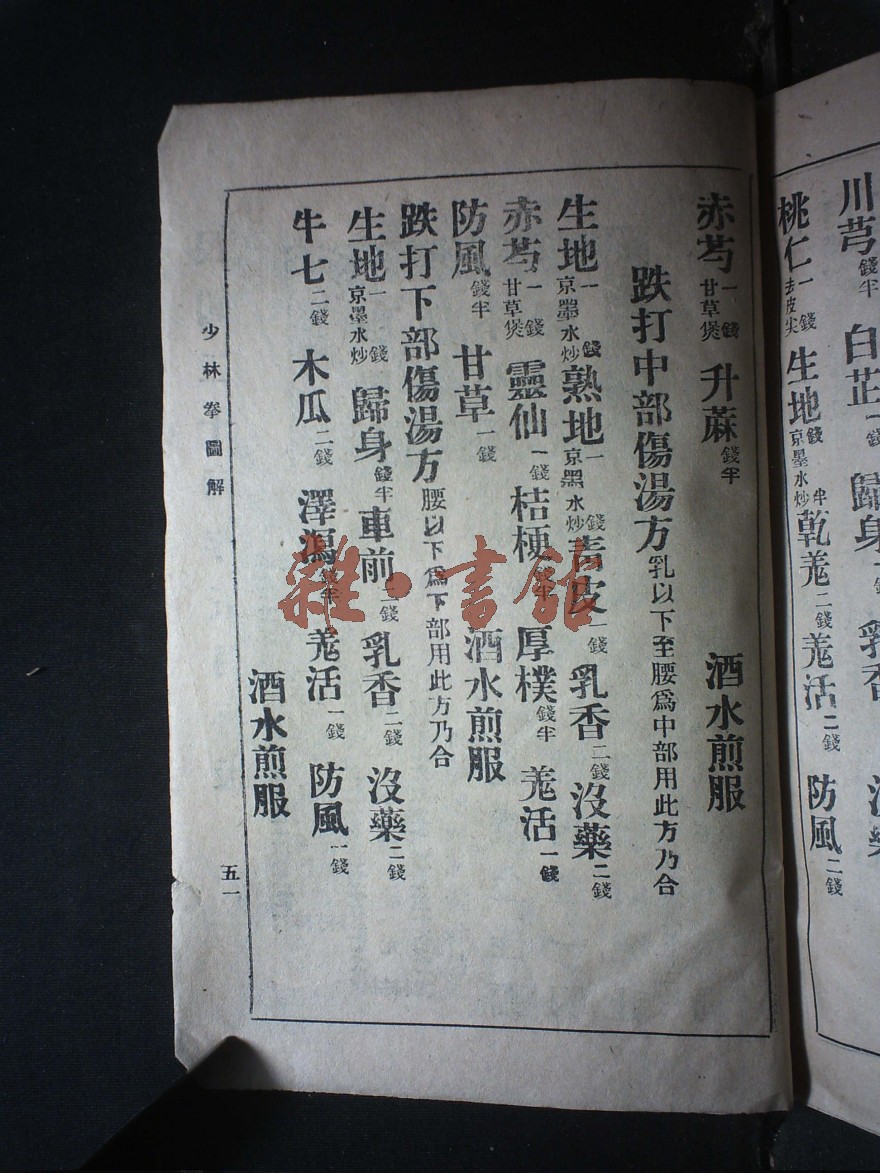 川芎錢半 白芷一錢 歸身
桃仁一錢去皮尖 生地錢半京墨水炒 乾羗二錢 羗活二錢 防風二錢
赤芍一錢甘草煲 升蔴錢半 酒水煎服
跌打中部傷湯方乳以下至腰爲中部用此方乃合
生地一錢京墨水炒 熟地一錢京黑水炒 青皮一錢 乳香二錢 沒藥二錢
赤芍一錢甘草煲 靈仙一錢 桔梗錢半 厚樸錢半 羗活一錢
防風錢半 甘草一錢 酒水煎服
跌打下部傷湯方腰以下爲下部用此方乃合
生地一錢京墨水炒 歸身錢半 車前二錢 乳香二錢 沒藥二錢
牛七二錢 木瓜二錢 澤瀉錢半 羗活一錢 防風一錢
酒水煎服
少林拳圖解
五一
雜·書館